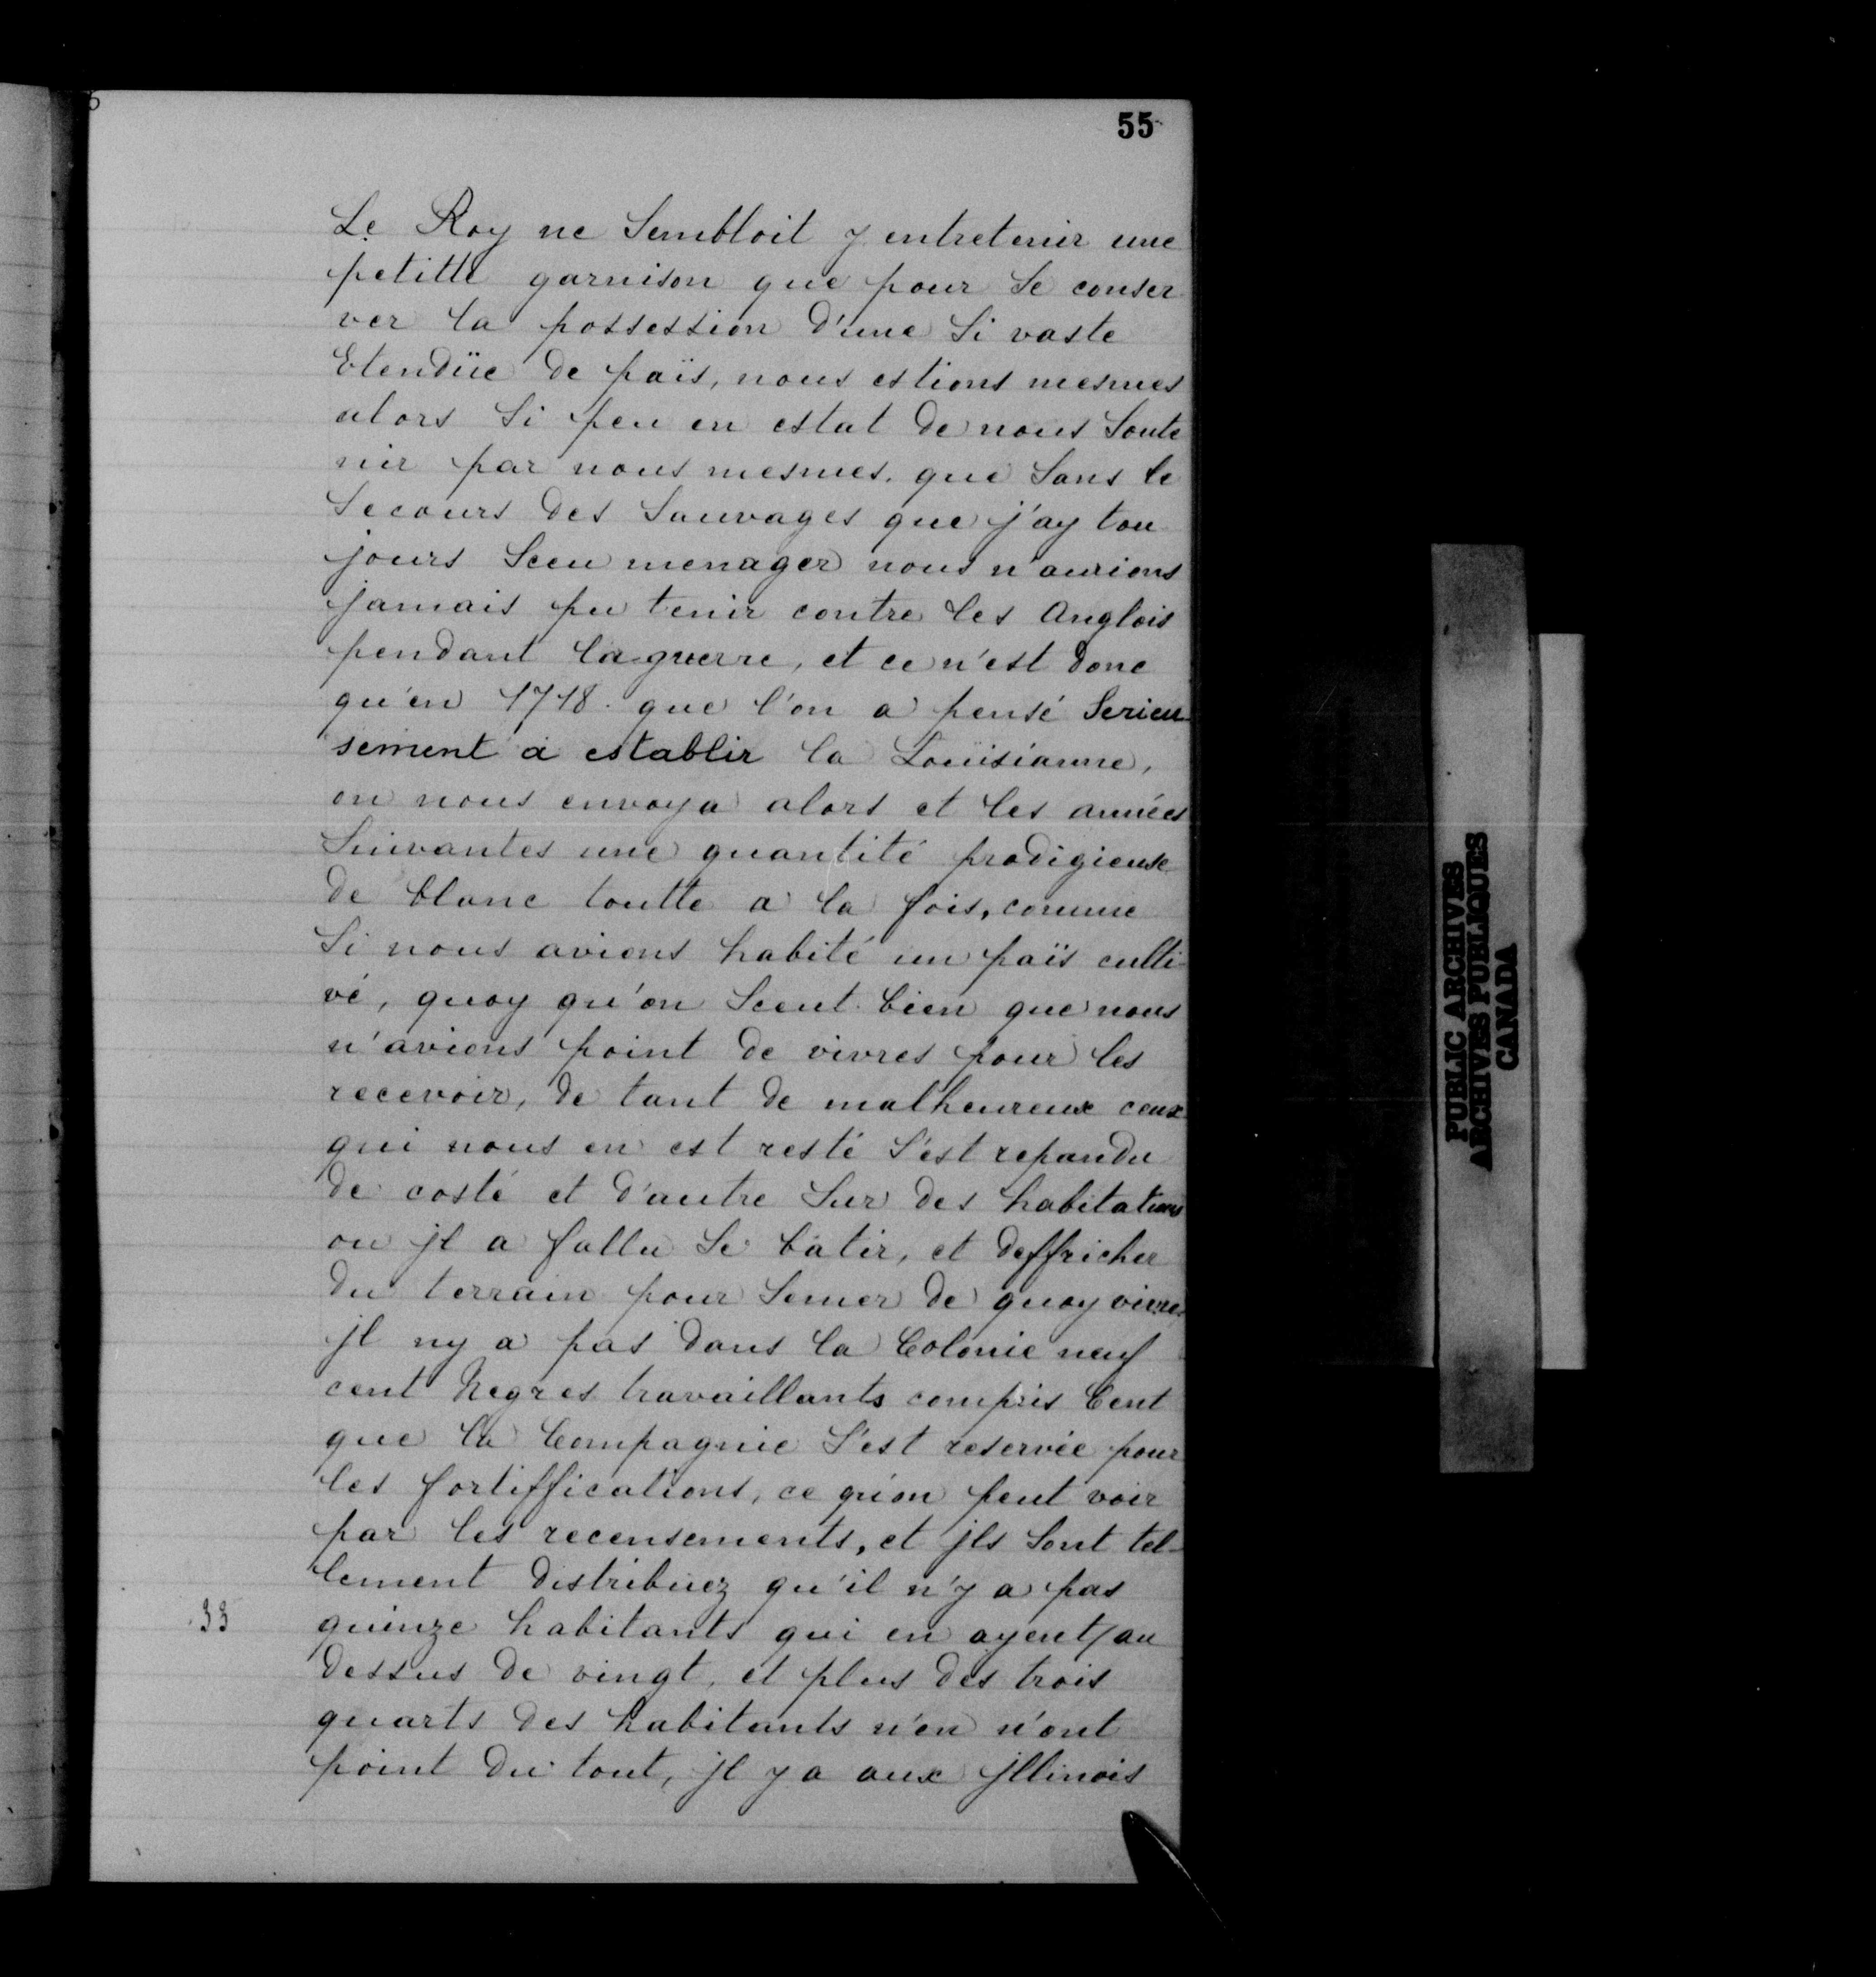 55
Le Roy ne Sembloit y entretenir une
petitte garnison que pour Se conser
ver la possession d'une Si vaste
Etendüe de païs, nous estions mesmes
alors Si peu en estat de nous Soute
nir par nous mesmes. que Sans le
Secours des Sauvages que j'ay tou
jours Sceu menager nous n'aurions
jamais pu tenir contre les Anglois
pendant la guerre, et ce n'est donc
qu'en 1718. que l'on a pensé Serieu
sement à establir la Loüisianne,
on nous envoya alors et les années
Suivantes une quantité prodigieuse
de blanc toutte a la fois, comme
Si nous avions habité un païs culti-
vé, quoy qu'on Sceut bien que nous
n'avions point de vivres pour les
recevoir, de tant de malheureux ceux
qui nous en est resté S'est repandu
de costé et d'autre Sur des habitations
ou jl a fallu Se bâtir, et deffricher
du terrain pour Semer de quoy vivre.
jl ny a pas dans la Colonie neuf
cent Negres travaillants compris Cent
que la Compagnie S'est reservée pour
les fortiffications, ce qu'on peut voir
par les recensements, et jls Sont tel-
lement distribuez qu'il n'y a pas
33
quinze habitants qui en ayent/au
dessus de vingt, et plus des trois
quarts des habitants n'en n'ont
point du tout, jl y a aux jllinois
PUBLIC ARCHIVES
ARCHIVES PUBLIQUES
CANADA